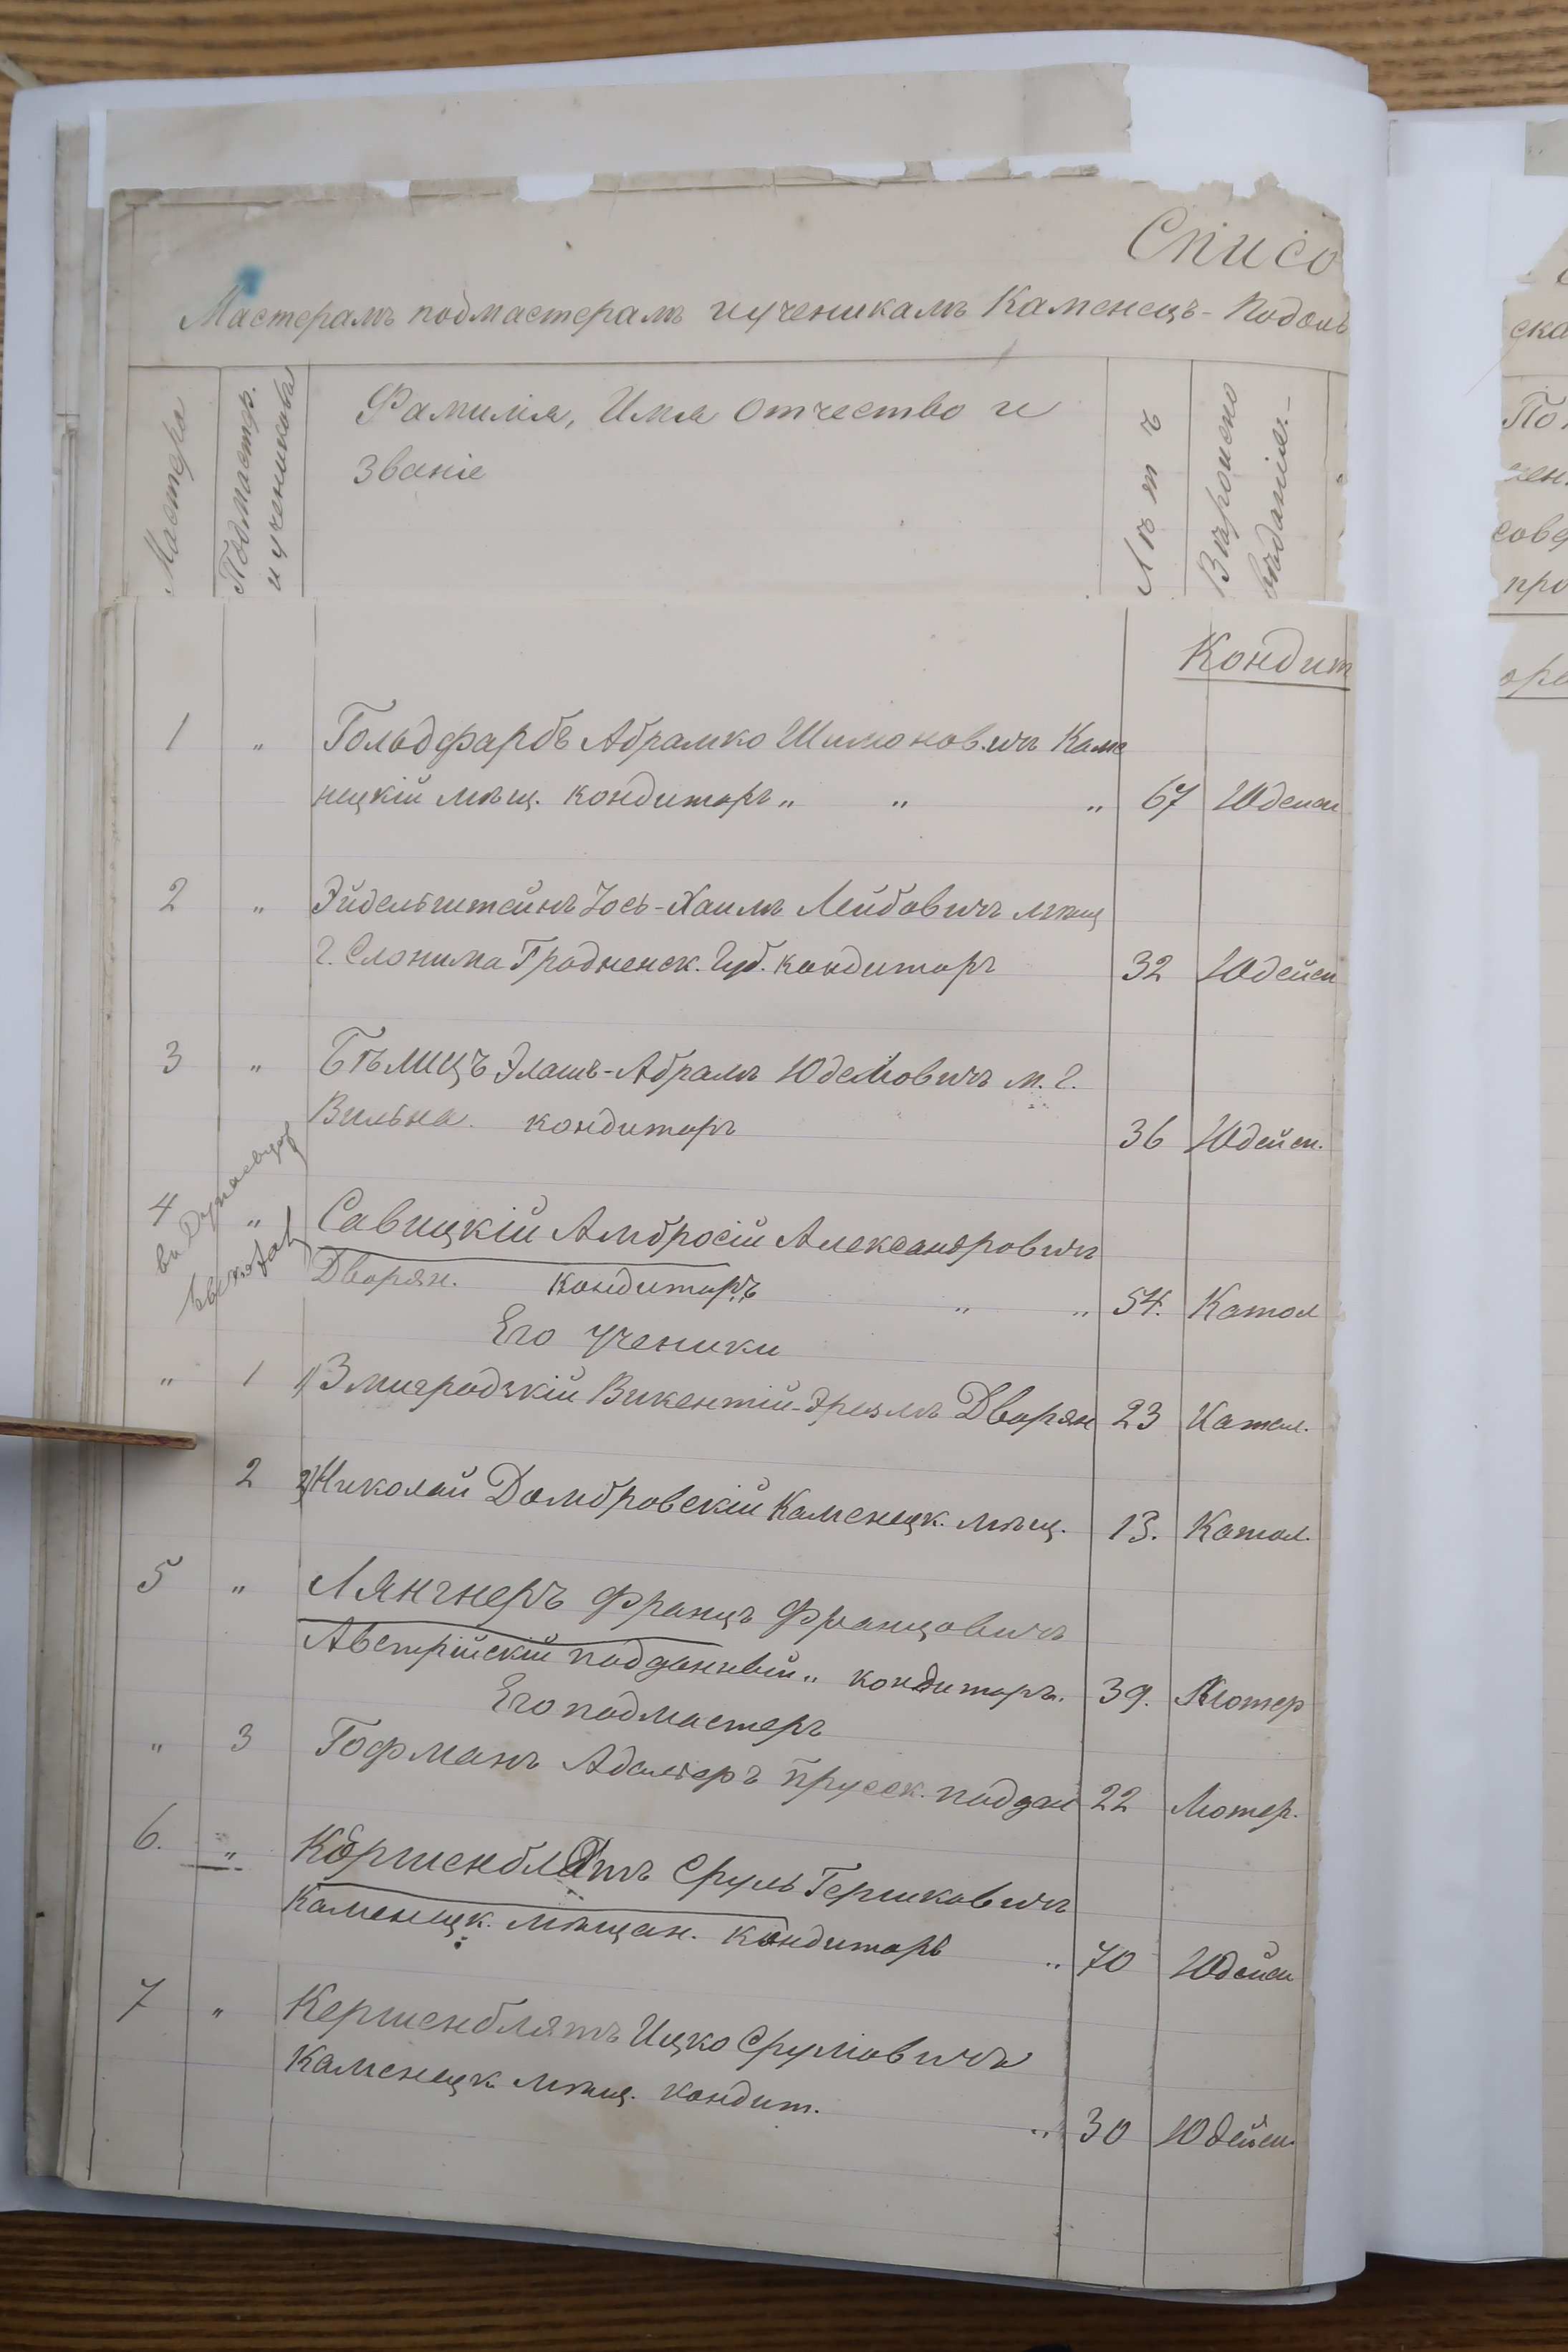 Списо
Мастерамъ подмастерамъ и ученикамъ Каменецъ-Подоль
Мастера
Подмастер.
и учениковъ
Фамилія, Имя Отчество и
Званіе
Лѣтъ
Вѣроиспо
вѣданія.-
Кондит
1 „ Гольдфарбъ Абрамко Шимоновичъ Каме
нецкій мѣщ. кондиторъ „ „ „ 67 Юдейск
2 „ Эйдельштейнъ Іось-Хаимъ Лейбовичъ мѣщ
г. Слонима Гродненск. Губ. кондиторъ 32 Юдейск
3 „ Бѣлицъ Элашъ-Абрамъ Юделіовичъ м. г.
Вильна. кондиторъ 36 Юдейск.
4 „ Савицкій Амбросій Александровичъ
Дворян. кондиторъ „ „ 54. Катол
Его ученики
„ 1 1) Змигродзкій Викентій- Дворян 23 Катол.
2 2) Николай Домбровскій Каменецк. мѣщ. 13. Катол.
5 „ Лянгнеръ Францъ Францовичъ
Австрійскій подданный „ кондиторъ. 39. Лютер
Его подмастеръ
„ 3 Гофманъ Прусск. поддан 22 Лютер.
6. „ Кершенблатъ Сруль Гершковичъ
Каменецк. мѣщан. кондиторъ „ 70 Юдейск
7 „ Кершенблятъ Ицко Cруліовичъ
Каменецк мѣщ. кондит. „ 30 Юдейск.
ска
По
сове
про
оро